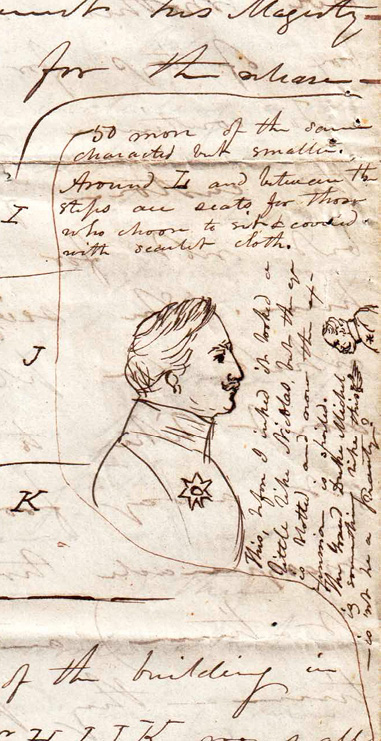 his Majesty
for the
50 more of the same
character but smaller.
Around L and between the
steps are seats for those
who choose to sit & covered
with scarlet cloth.
I
J
K
This, before I inked it looked a
little like Nicolas, but the eye
is blotted and now the ex-
pression is spoiled.
The Grand Duke Michel
is something like this
— is not he a beauty?
of the building in
H I J K